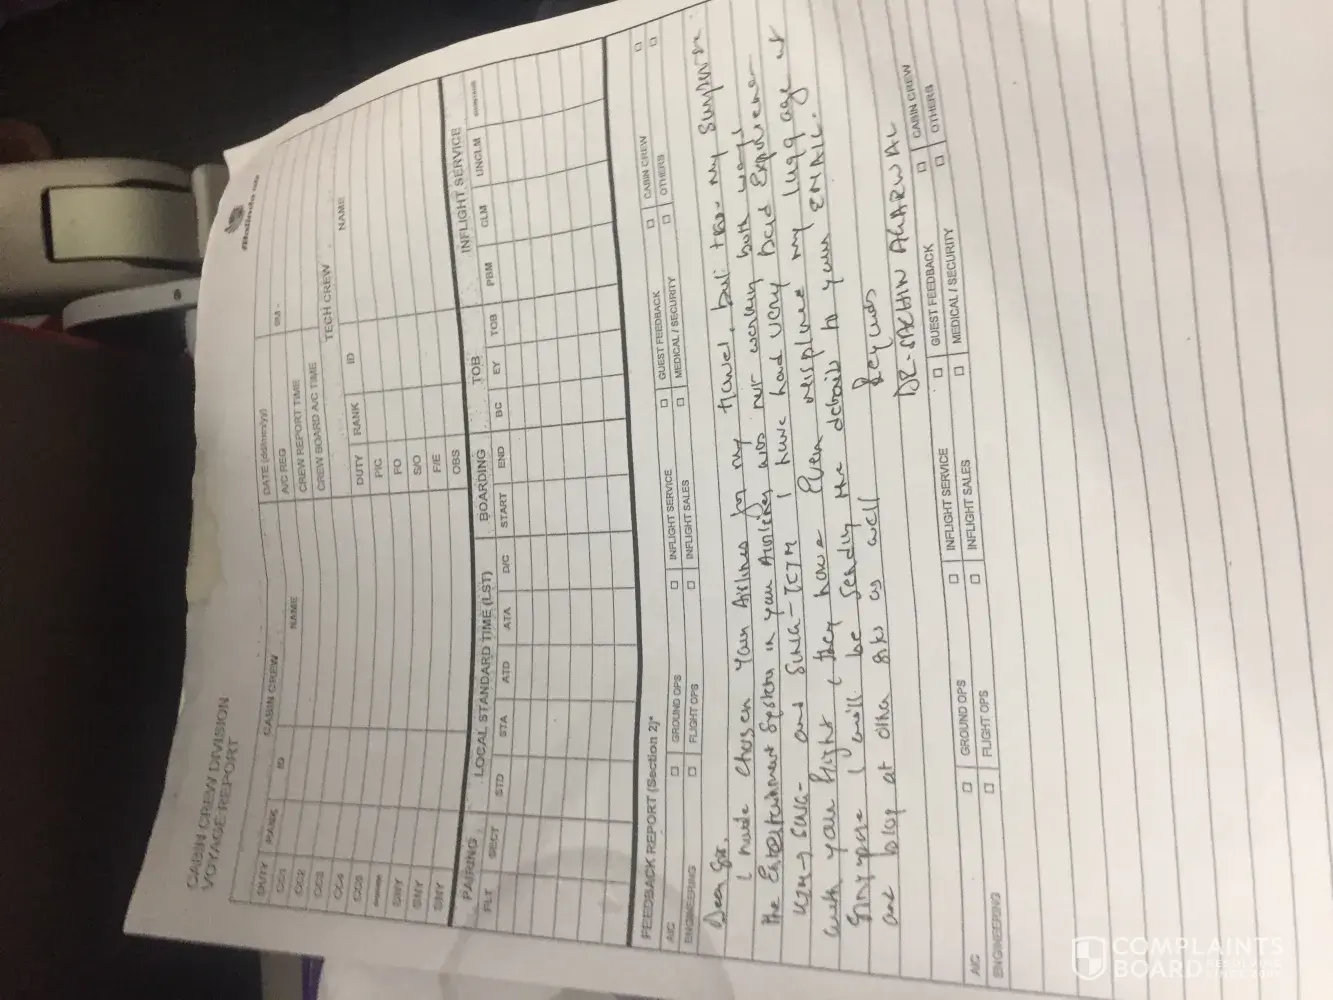 Malindo air
CABIN CREW DIVISION
VOYAGE REPORT
DATE (dd/mm/yy)
A/C REG
CREW REPORT TIME
CREW BOARD A/C TIME
CABIN CREW TECH CREW
DUTY RANK ID NAME DUTY RANK ID NAME
CC1 PIC
CC2 FO
CC3 S/O
CC4 F/E
CC5 OBS
SNY
SNY
SNY
PAIRING LOCAL STANDARD TIME (LST) BOARDING TOB INFLIGHT SERVICE
FLT SECT STD STA ATD ATA D/C START END BC EY TOB PBM CLM UNCLM
FEEDBACK REPORT (Section 2)*
A/C GROUND OPS INFLIGHT SERVICE GUEST FEEDBACK CABIN CREW
ENGINEERING FLIGHT OPS INFLIGHT SALES MEDICAL / SECURITY OTHERS
Dear Sir,
I have chosen your Airlines for my travel, but my
the Entertainment System in your Airlines was not working both ways
and I have had very bad Experience
with your flight & they have Even misplace my luggage at
I will be sending the details to your EMAIL.
and blog at other sites as well
Regards
DR-SACHIN AGARWAL
A/C GROUND OPS INFLIGHT SERVICE GUEST FEEDBACK CABIN CREW
ENGINEERING FLIGHT OPS INFLIGHT SALES MEDICAL / SECURITY OTHERS
COMPLAINTS
BOARD RESOLVING SINCE 2004